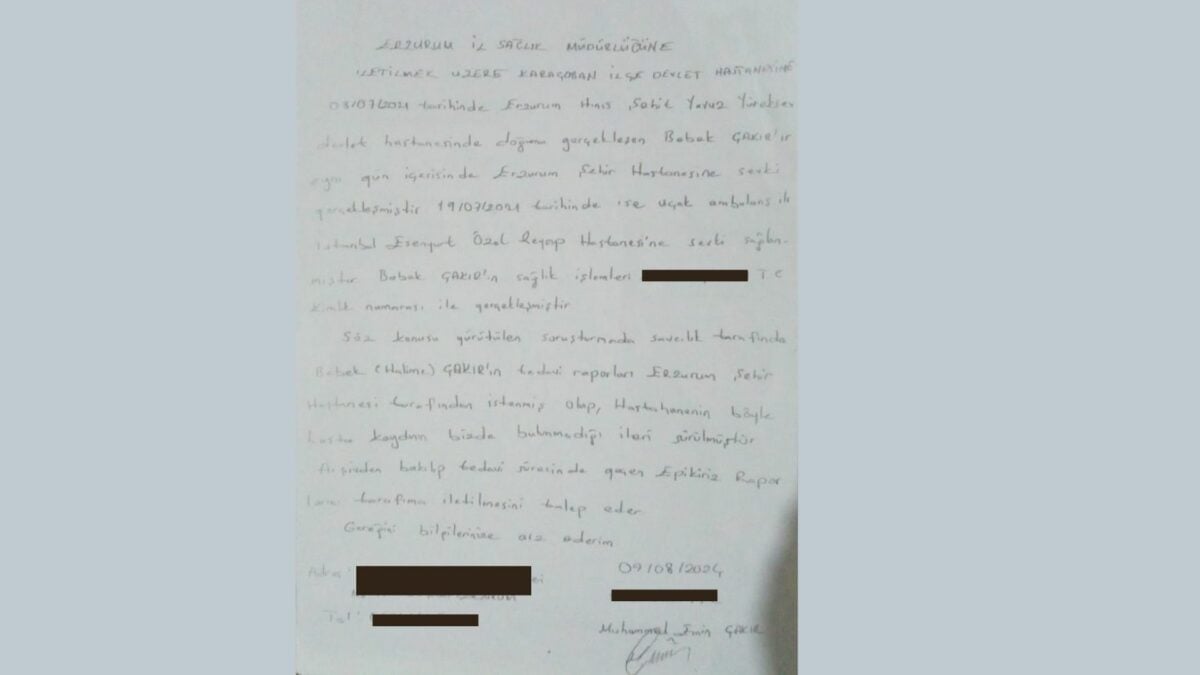 ERZURUM İL SAĞLIK MÜDÜRLÜĞÜNE
İLETİLMEK UZERE KARAÇOBAN İLÇE DEVLET HASTANESİNE
03/07/2021 tarihinde Erzurum Hınıs Şehit Yavuz Yürekseven
devlet hastanesinde doğumu gerçekleşen Bebek ÇAKIR'ın
aynı gün içerisinde Erzurum Şehir Hastanesine sevki
gerçekleşmiştir 19/07/2021 tarihinde ise uçak ambulans ile
istanbul Esenyurt Özel Reyap Hastanesi'ne sevki sağlan-
mıştır Bebek ÇAKIR'ın sağlık işlemleri T C
Kimlik numarası ile gerçekleşmiştir
Söz konusu yürütülen soruşturmada savcılık tarafında
Bebek (Halime) ÇAKIR'ın tedavi raporları ERzurum Şehir
Hastanesi tarafından istenmiş olup, Hastahanenin böyle
hasta kaydının bizde bulunmadığı ileri sürülmüştür
Arşivden bakılıp tedavi süresinde geçen Epikiriz Rapor
ları tarafıma iletilmesini talep eder
Gereğini bilgilerinize arz ederim
Adres: 09/08/2024
ERZURUM
Tel:
Muhammed Emin ÇAKIR